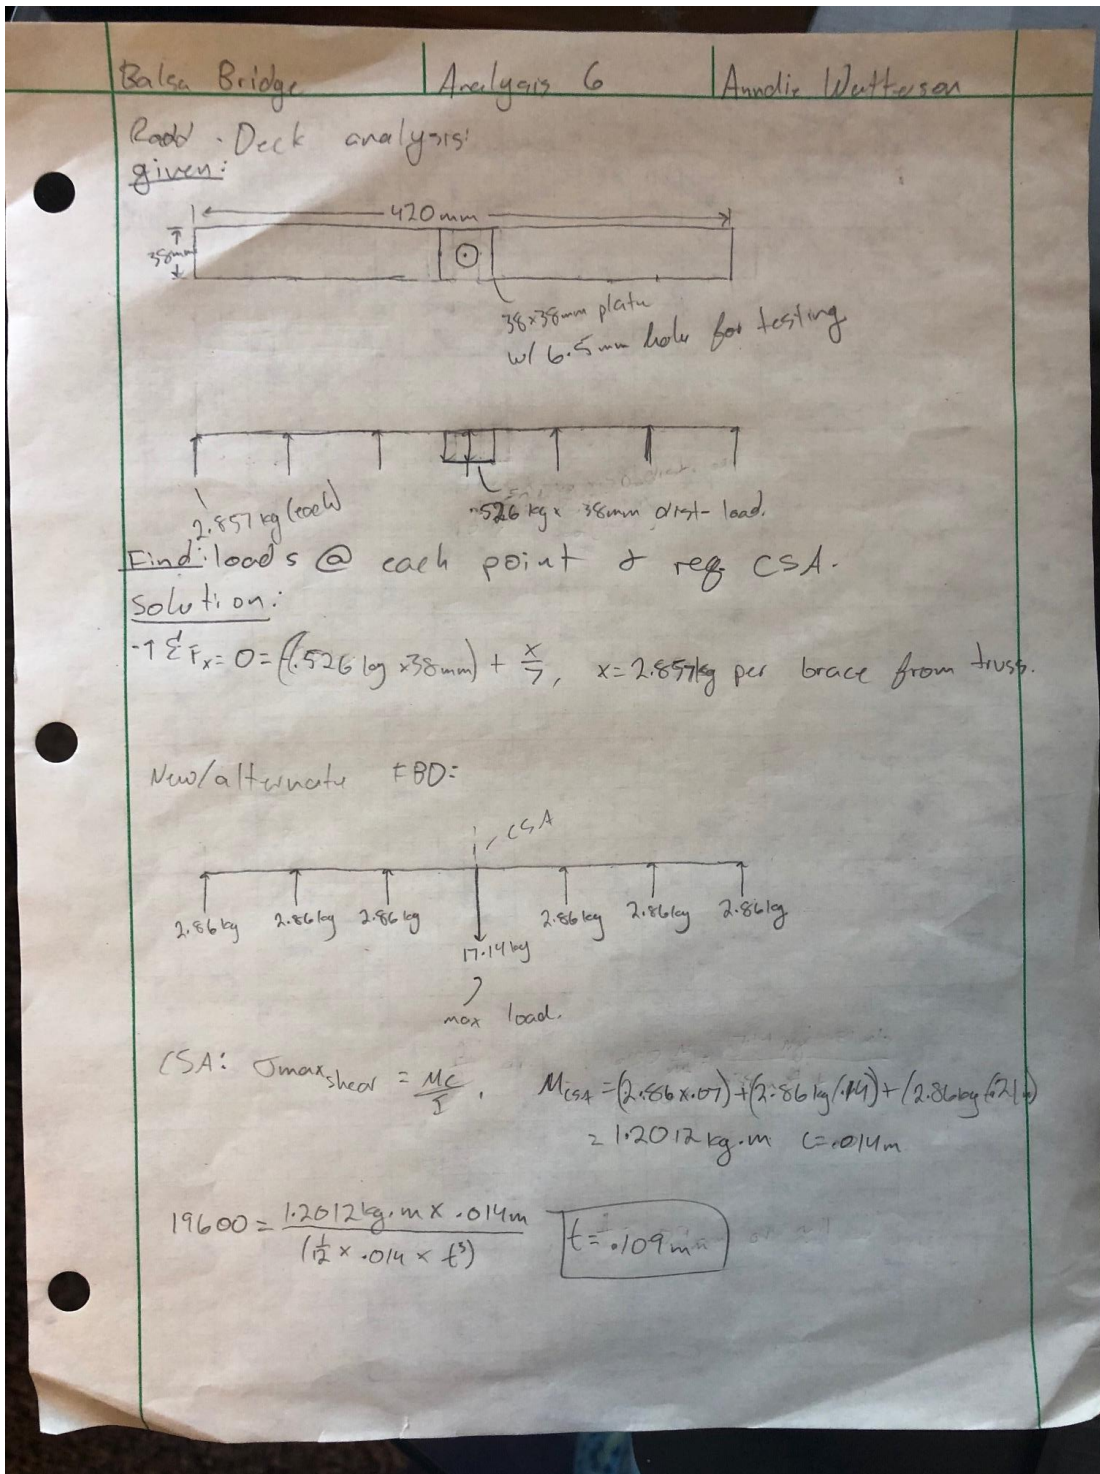 Balsa Bridge Analysis 6 Anndie Watterson
Road Deck analysis:
given:
420mm
38mm
38x38mm plate
w/ 6.5mm hole for testing
2.857 kg (each)
.526 kg x 38mm dist- load.
Find: loads @ each point & req. CSA.
Solution:
-↑ΣFx = 0 = (.526 kg x38mm) + x/7, x = 2.857kg per brace from truss.
New/alternate FBD:
CSA
2.86 kg 2.86 kg 2.86 kg 2.86 kg 2.86 kg 2.86 kg
17.14 kg
max load.
CSA: σmax shear = Mc/I , MCSA = (2.86 x .07) + (2.86 kg (.14) + (2.86kg (.21)
= 1.2012 kg.m C = .014m
19600 = 1.2012 kg.m x .014m / (1/12 x .014 x t³) t = .109m